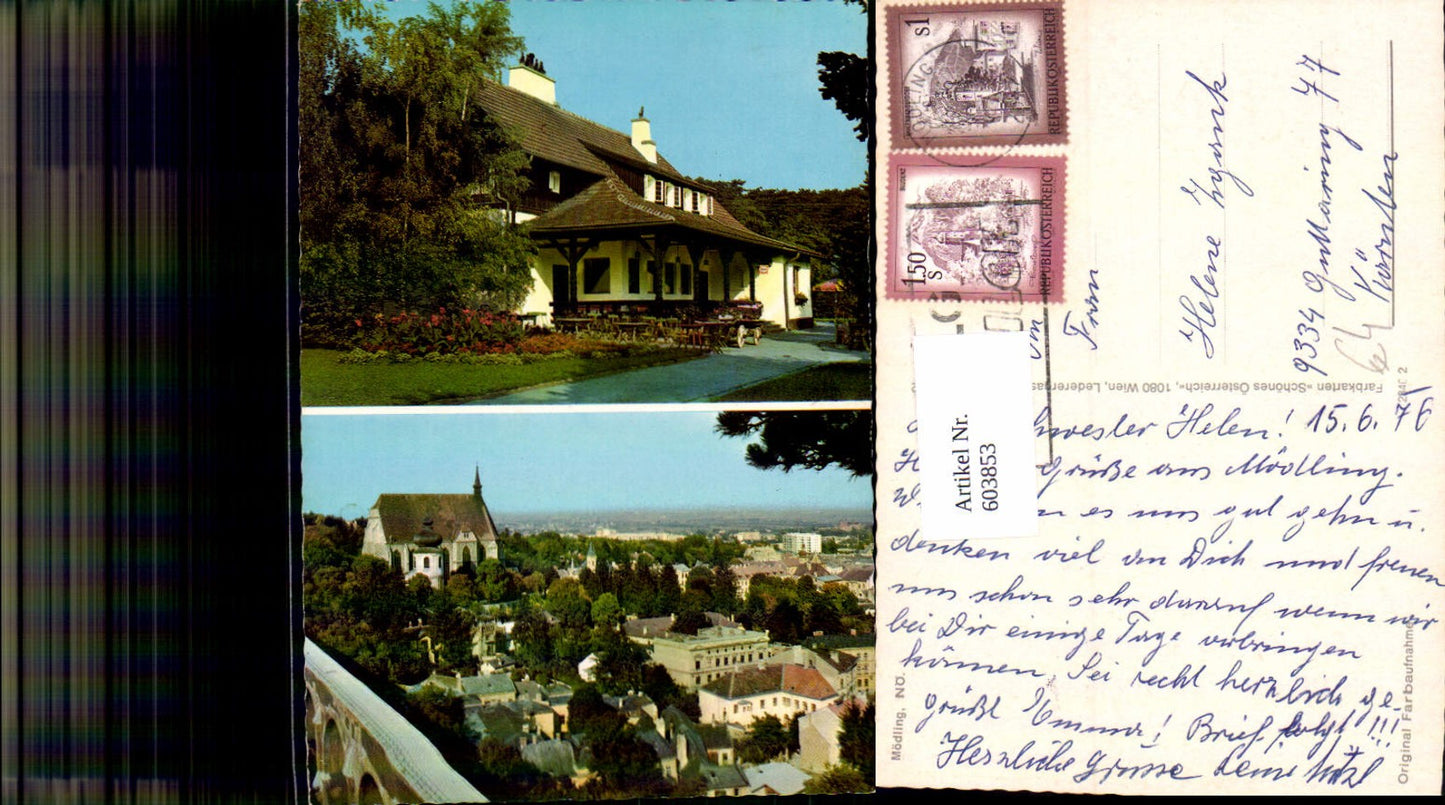 s1
REPUBLIK ÖSTERREICH
1.50 S
REPUBLIK ÖSTERREICH
Frau
Helene
9334 Guttaring 77
Kärnten
Farbkarten »Schönes Österreich«, 1080 Wien, Lederergas
Artikel Nr.
603853
Helen! 15.6.76
Grüße aus Mödling.
es uns gut gehn u.
denken viel an Dich und freuen
uns schon sehr darauf wenn wir
bei Dir einige Tage verbringen
können Sei recht herzlich ge-
grüßt Brief folgt!!!
Herzliche Grüsse
Mödling, NÖ.
Original Farbaufnahme